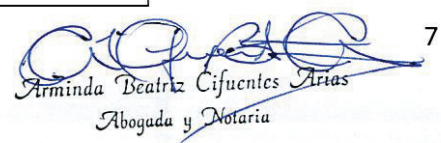 7
Arminda Beatriz Cifuentes Arias
Abogada y Notaria